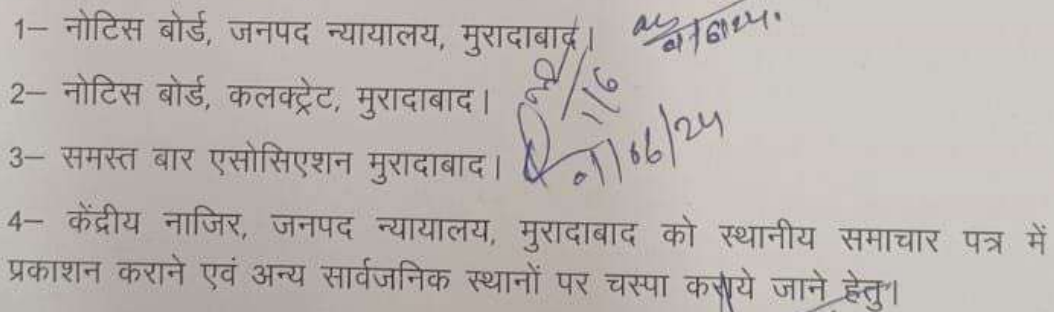 1– नोटिस बोर्ड, जनपद न्यायालय, मुरादाबाद।
2– नोटिस बोर्ड, कलक्ट्रेट, मुरादाबाद।
11/6
3– समस्त बार एसोसिएशन मुरादाबाद।
01/06/24
4– केंद्रीय नाजिर, जनपद न्यायालय, मुरादाबाद को स्थानीय समाचार पत्र में
प्रकाशन कराने एवं अन्य सार्वजनिक स्थानों पर चस्पा कराये जाने हेतु।